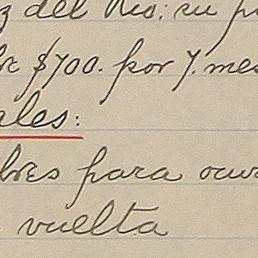 z del Rio: su p
$700. por 7. mes
ales:
bres para ocu
vuelta